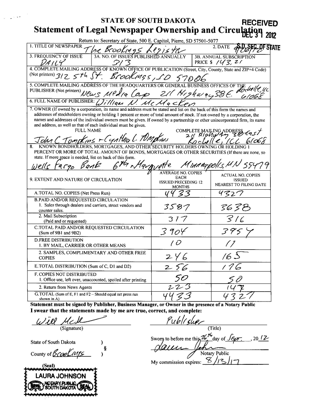 STATE OF SOUTH DAKOTA
RECEIVED
Statement of Legal Newspaper Ownership and Circulation
DEC 31 2012
Return to: Secretary of State, 500 E. Capitol, Pierre, SD 57501-5077
S.D. SEC. OF STATE
1. TITLE OF NEWSPAPER The Brookings Register
2. DATE
3. FREQUENCY OF ISSUE DAILY
3A. NO. OF ISSUES PUBLISHED ANNUALLY 213
3B. ANNUAL SUBSCRIPTION PRICE $ 143.21
4. COMPLETE MAILING ADDRESS OF KNOWN OFFICE OF PUBLICATION (Street, City, County, State and ZIP+4 Code)
(Not printers) 312 5th St. Brookings, SD 57006
5. COMPLETE MAILING ADDRESS OF THE HEADQUARTERS OR GENERAL BUSINESS OFFICES OF THE PUBLISHER
(Not printers) News Media Corp 211 Highway 38E Rochelle, IL 61068
6. FULL NAME OF PUBLISHER: William N McMacken
7. OWNER (If owned by a corporation, its name and address must be stated and also immediately
FULL NAME
COMPLETE MAILING ADDRESS
John C Tompkins - Cynthia
211 Highway 38 East
Rochelle, ILL 61068
8. KNOWN BONDHOLDERS, MORTGAGES, AND OTHER SECURITY HOLDERS OWNING OR HOLDING 1
PERCENT OR MORE OF TOTAL AMOUNT OF BONDS, MORTGAGES OR OTHER SECURITIES (If there are none, so
state. If more space is needed, list on back of this form.
Wells Fargo Bank 6th & Marquette Minneapolis, MN 55479
9. EXTENT AND NATURE OF CIRCULATION
AVERAGE NO. COPIES EACH ISSUED PRECEDING 12 MONTHS
ACTUAL NO. COPIES ISSUED NEAREST TO FILING DATE
A. TOTAL NO. COPIES (Net Press Run) 4433 4327
B. PAID AND/OR REQUESTED CIRCULATION
1. Sales through dealers and carriers, street vendors and counter sales. 3587 3638
2. Mail Subscription (Paid and/or requested) 317 316
C. TOTAL PAID AND/OR REQUESTED CIRCULATION (Sum of 9B1 and 9B2) 3904 3954
D. FREE DISTRIBUTION
1. BY MAIL, CARRIER OR OTHER MEANS 10 11
2. SAMPLES, COMPLIMENTARY AND OTHER FREE COPIES 246 165
E. TOTAL DISTRIBUTION (Sum of C, D1 and D2) 256 176
F. COPIES NOT DISTRIBUTED
1. Office use, left over, unaccounted, spoiled after printing 50 50
2. Return from News Agents 223 147
G. TOTAL (Sum of E, F1 and F2 - Should equal net press run shown in A) 4433 4327
Statement must be signed by Publisher, Business Manager, or Owner in the presence of a Notary Public
I swear that the statements made by me are true, correct, and complete:
Publisher
(Signature) (Title)
State of South Dakota )
Sworn to before me this day of Sept., 2012
County of Brookings )
Notary Public
(Seal)
My commission expires: 8/13/17
LAURA JOHNSON
NOTARY PUBLIC
SOUTH DAKOTA